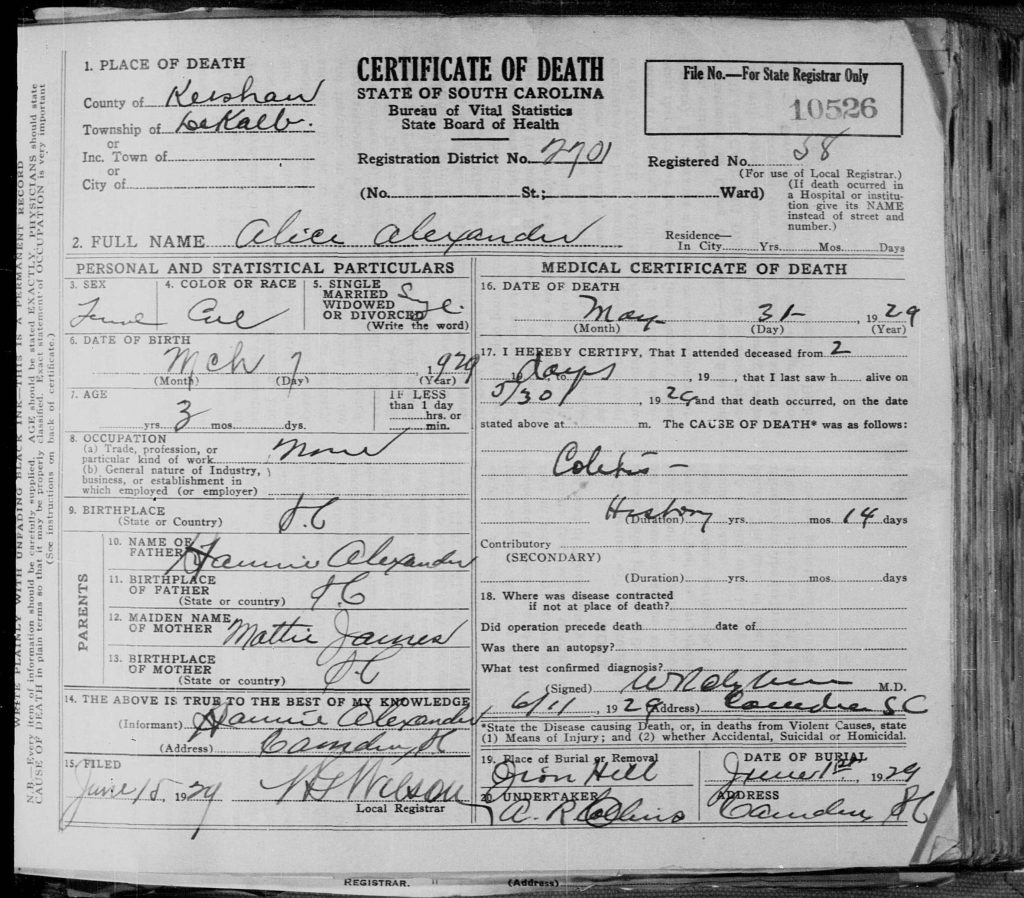 WRITE PLAINLY WITH UNFADING BLACK INK—THIS IS A PERMANENT RECORD
N. B.—Every item of information should be carefully supplied. AGE should be stated EXACTLY. PHYSICIANS should state
CAUSE OF DEATH in plain terms so that it may be properly classified. Exact statement of OCCUPATION is very important
(See instructions on back of certificate.)
1. PLACE OF DEATH
County of Kershaw
Township of DeKalb.
or
Inc. Town of
or
City of
CERTIFICATE OF DEATH
STATE OF SOUTH CAROLINA
Bureau of Vital Statistics
State Board of Health
Registration District No. 2701
(No. St.; Ward)
File No.—For State Registrar Only
10526
Registered No. 58
(For use of Local Registrar.)
(If death ocurred in
a Hospital or institu-
tion give its NAME
instead of street and
number.)
2. FULL NAME Alice Alexander
Residence—
In City Yrs. Mos. Days
PERSONAL AND STATISTICAL PARTICULARS
3. SEX
4. COLOR OR RACE Col
5. SINGLE
MARRIED
WIDOWED
OR DIVORCED
(Write the word)
6. DATE OF BIRTH
Mch 7 1929
(Month) (Day) (Year)
7. AGE
yrs. 3 mos. dys.
IF LESS
than 1 day
hrs. or
min.
8. OCCUPATION
(a) Trade, profession, or
particular kind of work None
(b) General nature of Industry,
business, or establishment in
which employed (or employer)
9. BIRTHPLACE
(State or Country) S.C
PARENTS
10. NAME OF
FATHER Alexander
11. BIRTHPLACE
OF FATHER
(State or country) S.C
12. MAIDEN NAME
OF MOTHER Mattie James
13. BIRTHPLACE
OF MOTHER
(State or country) S.C
14. THE ABOVE IS TRUE TO THE BEST OF MY KNOWLEDGE
(Informant) Alexander
(Address) Camden, SC
15. FILED
June 15, 1929 Wilson
Local Registrar
MEDICAL CERTIFICATE OF DEATH
16. DATE OF DEATH
May 31 1929
(Month) (Day) (Year)
17. I HEREBY CERTIFY, That I attended deceased from 2
days 19 , to , 19 , that I last saw h alive on
5/30/ , 1929 and that death occurred, on the date
stated above at m. The CAUSE OF DEATH* was as follows:
Colitis —
History
(Duration) yrs. mos 14 days
Contributory
(SECONDARY)
(Duration) yrs. mos. days
18. Where was disease contracted
if not at place of death?
Did operation precede death date of
Was there an autopsy?
What test confirmed diagnosis?
(Signed) M.D.
6/11 , 1929 (Address) Camden SC
*State the Disease causing Death, or, in deaths from Violent Causes, state
(1) Means of Injury; and (2) whether Accidental, Suicidal or Homicidal.
19. Place of Burial or Removal
Zion Hill
DATE OF BURIAL
June 1st, 1929
20. UNDERTAKER
A. R Collins
ADDRESS
Camden SC
REGISTRAR. (Address)